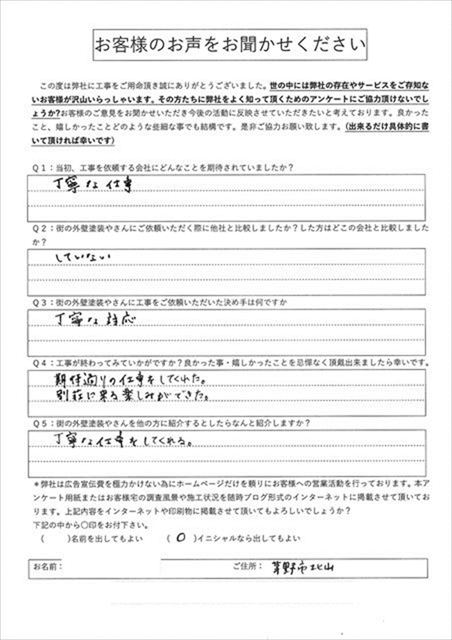 お客様のお声をお聞かせください
この度は弊社に工事をご用命頂き誠にありがとうございました。世の中には弊社の存在やサービスをご存知な
いお客様が沢山いらっしゃいます。その方たちに弊社をよく知って頂くためのアンケートにご協力頂けないでし
ょうか?お客様のご意見をお聞かせいただき今後の活動に反映させていただきたいと考えております。良かった
こと、嬉しかったことどのような些細な事でも結構です。是非ご協力お願い致します。(出来るだけ具体的に書
いて頂ければ幸いです)
Q1:当初、工事を依頼する会社にどんなことを期待されていましたか?
丁寧な仕事
Q2:街の外壁塗装やさんにご依頼いただく際に他社と比較しましたか?した方はどこの会社と比較しました
か?
していない
Q3:街の外壁塗装やさんに工事をご依頼いただいた決め手は何ですか
丁寧な対応
Q4:工事が終わってみていかがですか?良かった事・嬉しかったことを忌憚なく頂戴出来ましたら幸いです。
期待通りの仕事をしてくれた。
別荘に来る楽しみができた。
Q5:街の外壁塗装やさんを他の方に紹介するとしたらなんと紹介しますか?
丁寧な仕事をしてくれる。
*弊社は広告宣伝費を極力かけない為にホームページだけを頼りにお客様への営業活動を行っております。本ア
ンケート用紙またはお客様宅の調査風景や施工状況を随時ブログ形式のインターネットに掲載させて頂いてお
ります。上記内容をインターネットや印刷物に掲載させて頂いてもよろしいでしょうか?
下記の中から〇印をお付下さい。
( )名前を出してもよい ( O )イニシャルなら出してもよい
お名前: ご住所: 茅野市北山